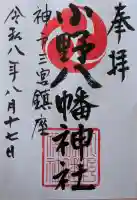 奉拝
小野八幡神社
神戸三宮鎮座
令和八年八月十七日